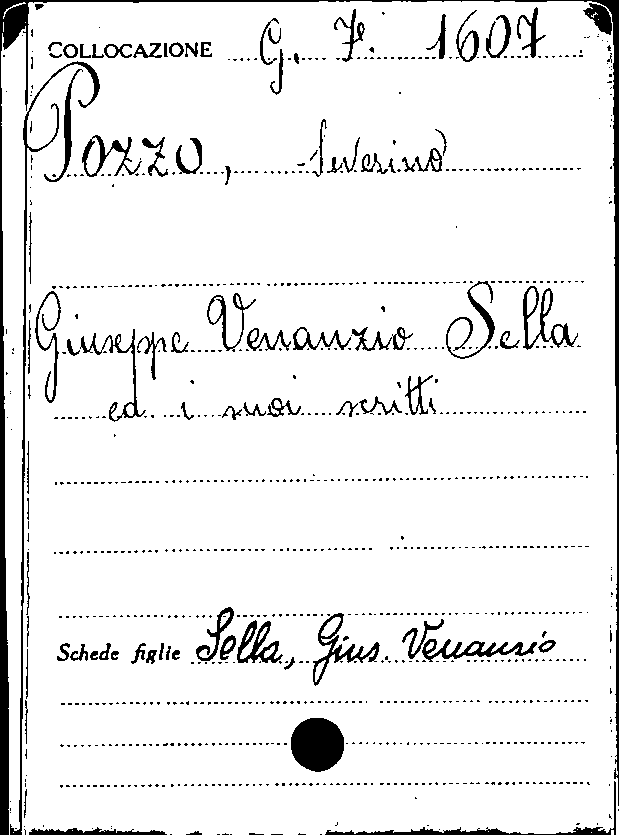 COLLOCAZIONE G. F. 1607
Pozzo, Severino
Giuseppe Venanzio Sella
ed i suoi scritti
Schede figlie Sella, Gius. Venanzio